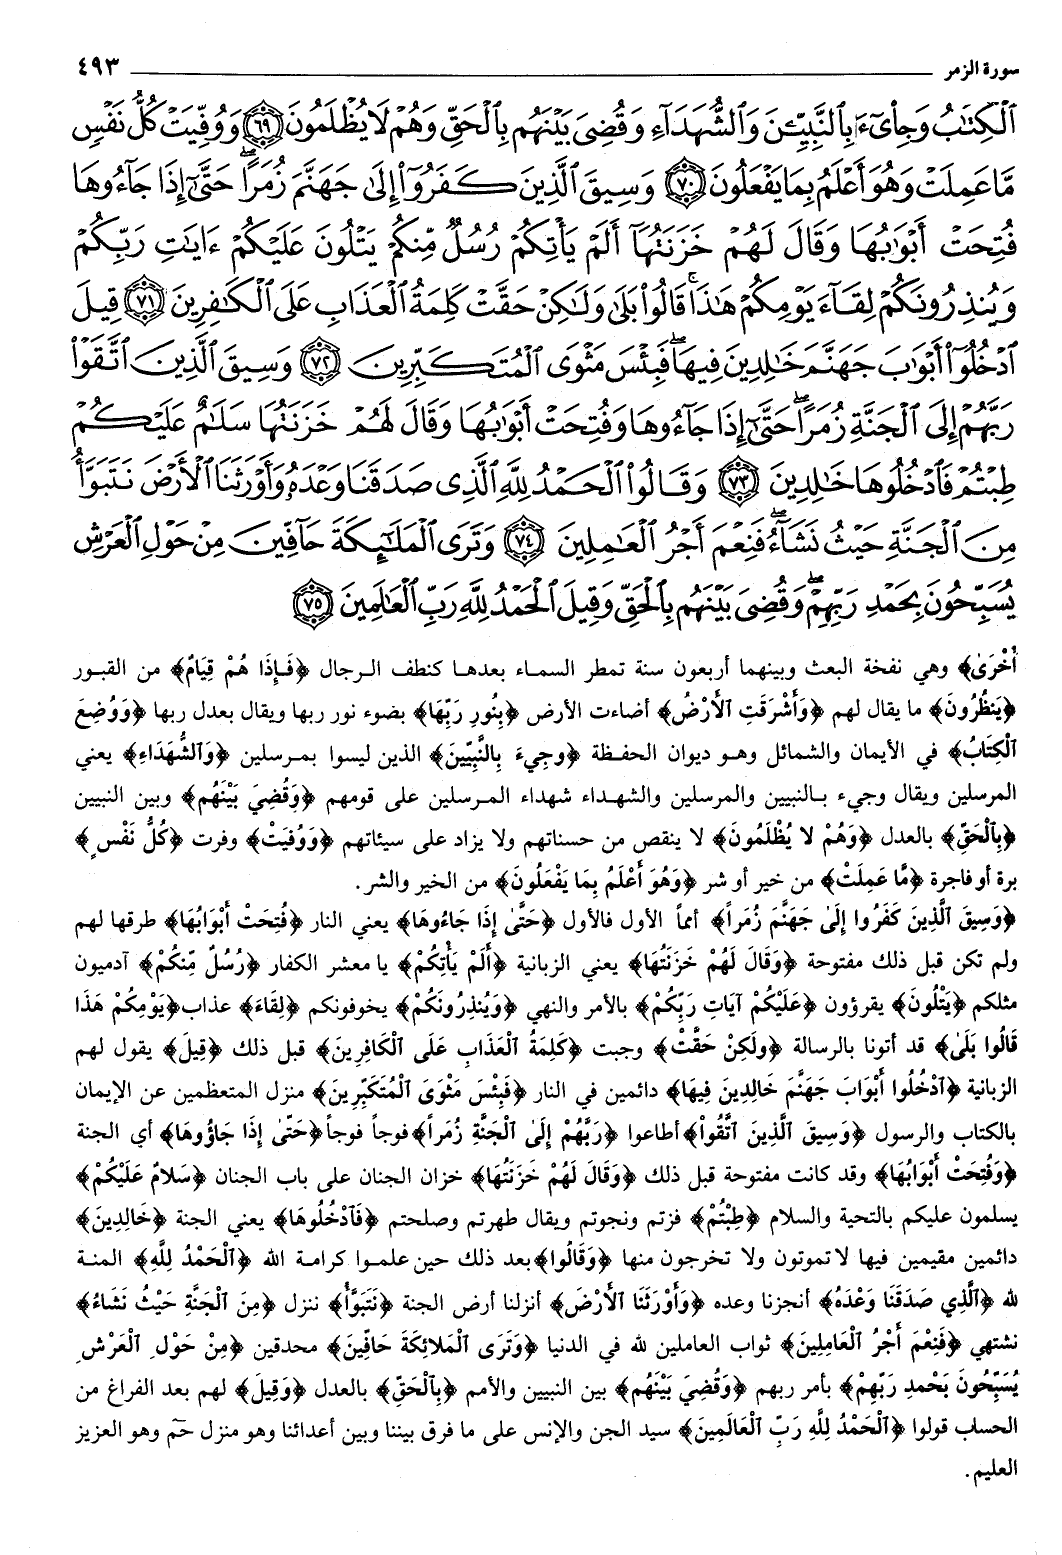 سورة الزمر ٤٩٣
ٱلۡكِتَٰبُ وَجِاْيٓءَ بِٱلنَّبِيِّـۧنَ وَٱلشُّهَدَآءِ وَقُضِيَ بَيۡنَهُم بِٱلۡحَقِّ وَهُمۡ لَا يُظۡلَمُونَ ٦٩ وَوُفِّيَتۡ كُلُّ نَفۡسٖ
مَّا عَمِلَتۡ وَهُوَ أَعۡلَمُ بِمَا يَفۡعَلُونَ ٧٠ وَسِيقَ ٱلَّذِينَ كَفَرُوٓاْ إِلَىٰ جَهَنَّمَ زُمَرًاۖ حَتَّىٰٓ إِذَا جَآءُوهَا
فُتِحَتۡ أَبۡوَٰبُهَا وَقَالَ لَهُمۡ خَزَنَتُهَآ أَلَمۡ يَأۡتِكُمۡ رُسُلٞ مِّنكُمۡ يَتۡلُونَ عَلَيۡكُمۡ ءَايَٰتِ رَبِّكُمۡ
وَيُنذِرُونَكُمۡ لِقَآءَ يَوۡمِكُمۡ هَٰذَاۚ قَالُواْ بَلَىٰ وَلَٰكِنۡ حَقَّتۡ كَلِمَةُ ٱلۡعَذَابِ عَلَى ٱلۡكَٰفِرِينَ ٧١ قِيلَ
ٱدۡخُلُوٓاْ أَبۡوَٰبَ جَهَنَّمَ خَٰلِدِينَ فِيهَاۖ فَبِئۡسَ مَثۡوَى ٱلۡمُتَكَبِّرِينَ ٧٢ وَسِيقَ ٱلَّذِينَ ٱتَّقَوۡاْ
رَبَّهُمۡ إِلَى ٱلۡجَنَّةِ زُمَرًاۖ حَتَّىٰٓ إِذَا جَآءُوهَا وَفُتِحَتۡ أَبۡوَٰبُهَا وَقَالَ لَهُمۡ خَزَنَتُهَا سَلَٰمٌ عَلَيۡكُمۡ
طِبۡتُمۡ فَٱدۡخُلُوهَا خَٰلِدِينَ ٧٣ وَقَالُواْ ٱلۡحَمۡدُ لِلَّهِ ٱلَّذِي صَدَقَنَا وَعۡدَهُۥ وَأَوۡرَثَنَا ٱلۡأَرۡضَ نَتَبَوَّأُ
مِنَ ٱلۡجَنَّةِ حَيۡثُ نَشَآءُۖ فَنِعۡمَ أَجۡرُ ٱلۡعَٰمِلِينَ ٧٤ وَتَرَى ٱلۡمَلَٰٓئِكَةَ حَآفِّينَ مِنۡ حَوۡلِ ٱلۡعَرۡشِ
يُسَبِّحُونَ بِحَمۡدِ رَبِّهِمۡۖ وَقُضِيَ بَيۡنَهُم بِٱلۡحَقِّ وَقِيلَ ٱلۡحَمۡدُ لِلَّهِ رَبِّ ٱلۡعَٰلَمِينَ ٧٥
أُخْرَىٰ﴾ وهي نفخة البعث وبينهما أربعون سنة تمطر السماء بعدها كنطف الرجال ﴿فَإِذَا هُمْ قِيَامٌ﴾ من القبور
﴿يَنظُرُونَ﴾ ما يقال لهم ﴿وَأَشْرَقَتِ ٱلأَرْضُ﴾ أضاءت الأرض ﴿بِنُورِ رَبِّهَا﴾ بضوء نور ربها ويقال بعدل ربها ﴿وَوُضِعَ
ٱلْكِتَابُ﴾ في الأيمان والشمائل وهو ديوان الحفظة ﴿وجِيءَ بِالنَّبِيِّينَ﴾ الذين ليسوا بمرسلين ﴿وَٱلشُّهَدَاءِ﴾ يعني
المرسلين ويقال وجيء بالنبيين والمرسلين والشهداء شهداء المرسلين على قومهم ﴿وَقُضِيَ بَيْنَهُم﴾ وبين النبيين
﴿بِٱلْحَقِّ﴾ بالعدل ﴿وَهُمْ لا يُظْلَمُونَ﴾ لا ينقص من حسناتهم ولا يزاد على سيئاتهم ﴿وَوُفِيَتْ﴾ وفرت ﴿كُلُّ نَفْسٍ﴾
برة أو فاجرة ﴿مَّا عَمِلَتْ﴾ من خير أو شر ﴿وَهُوَ أَعْلَمُ بِمَا يَفْعَلُونَ﴾ من الخير والشر.
﴿وَسِيقَ ٱلَّذِينَ كَفَرُوا إِلَىٰ جَهَنَّمَ زُمَراً﴾ أمماً الأول فالأول ﴿حَتَّىٰ إِذَا جَاءُوهَا﴾ يعني النار ﴿فُتِحَتْ أَبْوَابُهَا﴾ طرقها لهم
ولم تكن قبل ذلك مفتوحة ﴿وَقَالَ لَهُمْ خَزَنَتُهَا﴾ يعني الزبانية ﴿أَلَمْ يَأْتِكُمْ﴾ يا معشر الكفار ﴿رُسُلٌ مِّنكُمْ﴾ آدميون
مثلكم ﴿يَتْلُونَ﴾ يقرؤون ﴿عَلَيْكُمْ آيَاتِ رَبِّكُمْ﴾ بالأمر والنهي ﴿وَيُنذِرُونَكُمْ﴾ يخوفونكم ﴿لِقَاءَ﴾ عذاب ﴿يَوْمِكُمْ هَذَا
قَالُوا بَلَىٰ﴾ قد أتونا بالرسالة ﴿ولَكِنْ حَقَّتْ﴾ وجبت ﴿كَلِمَةُ ٱلْعَذَابِ عَلَى ٱلْكَافِرِينَ﴾ قبل ذلك ﴿قِيلَ﴾ يقول لهم
الزبانية ﴿ٱدْخُلُوا أَبْوَابَ جَهَنَّمَ خَالِدِينَ فِيهَا﴾ دائمين في النار ﴿فَبِئْسَ مَثْوَى ٱلْمُتَكَبِّرِينَ﴾ منزل المتعظمين عن الإيمان
بالكتاب والرسول ﴿وَسِيقَ ٱلَّذِينَ ٱتَّقَوْا﴾ أطاعوا ﴿رَبَّهُمْ إِلَىٰ ٱلْجَنَّةِ زُمَراً﴾ فوجاً فوجاً ﴿حَتىٰ إِذَا جَاؤُوهَا﴾ أي الجنة
﴿وَفُتِحَتْ أَبْوَابُهَا﴾ وقد كانت مفتوحة قبل ذلك ﴿وَقَالَ لَهُمْ خَزَنَتُهَا﴾ خزان الجنان على باب الجنان ﴿سَلامٌ عَلَيْكُمْ﴾
يسلمون عليكم بالتحية والسلام ﴿طِبْتُمْ﴾ فزتم ونجوتم ويقال طهرتم وصلحتم ﴿فَٱدْخُلُوهَا﴾ يعني الجنة ﴿خَالِدِينَ﴾
دائمين مقيمين فيها لا تموتون ولا تخرجون منها ﴿وَقَالُوا﴾ بعد ذلك حين علموا كرامة الله ﴿ٱلْحَمْدُ لِلَّهِ﴾ المنة
لله ﴿ٱلَّذِي صَدَقَنَا وَعْدَهُ﴾ أنجزنا وعده ﴿وَأَوْرَثَنَا ٱلأَرْضَ﴾ أنزلنا أرض الجنة ﴿نَتَبَوَّأُ﴾ ننزل ﴿مِنَ ٱلْجَنَّةِ حَيْثُ نَشَاءُ﴾
نشتهي ﴿فَنِعْمَ أَجْرُ ٱلْعَامِلِينَ﴾ ثواب العاملين لله في الدنيا ﴿وَتَرَى ٱلْمَلائِكَةَ حَافِّينَ﴾ محدقين ﴿مِنْ حَوْلِ ٱلْعَرْشِ
يُسَبِّحُونَ بَحْمدِ رَبِّهِمْ﴾ بأمر ربهم ﴿وَقُضِيَ بَيْنَهُم﴾ بين النبيين والأمم ﴿بِٱلْحَقِّ﴾ بالعدل ﴿وَقِيلَ﴾ لهم بعد الفراغ من
الحساب قولوا ﴿ٱلْحَمْدُ لِلَّهِ رَبِّ ٱلْعَالَمِينَ﴾ سيد الجن والإنس على ما فرق بيننا وبين أعدائنا وهو منزل حمٓ وهو العزيز
العليم.